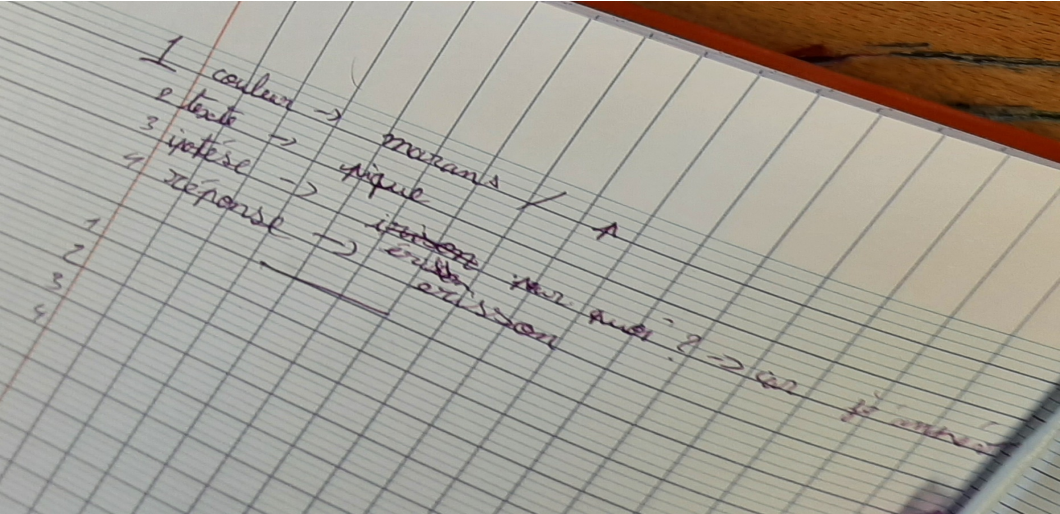 1 couleur → marans / A
2 texte → pique
3 ipotése → érisson pour quoi ? → car
4 réponse → erisson
1
2
3
4